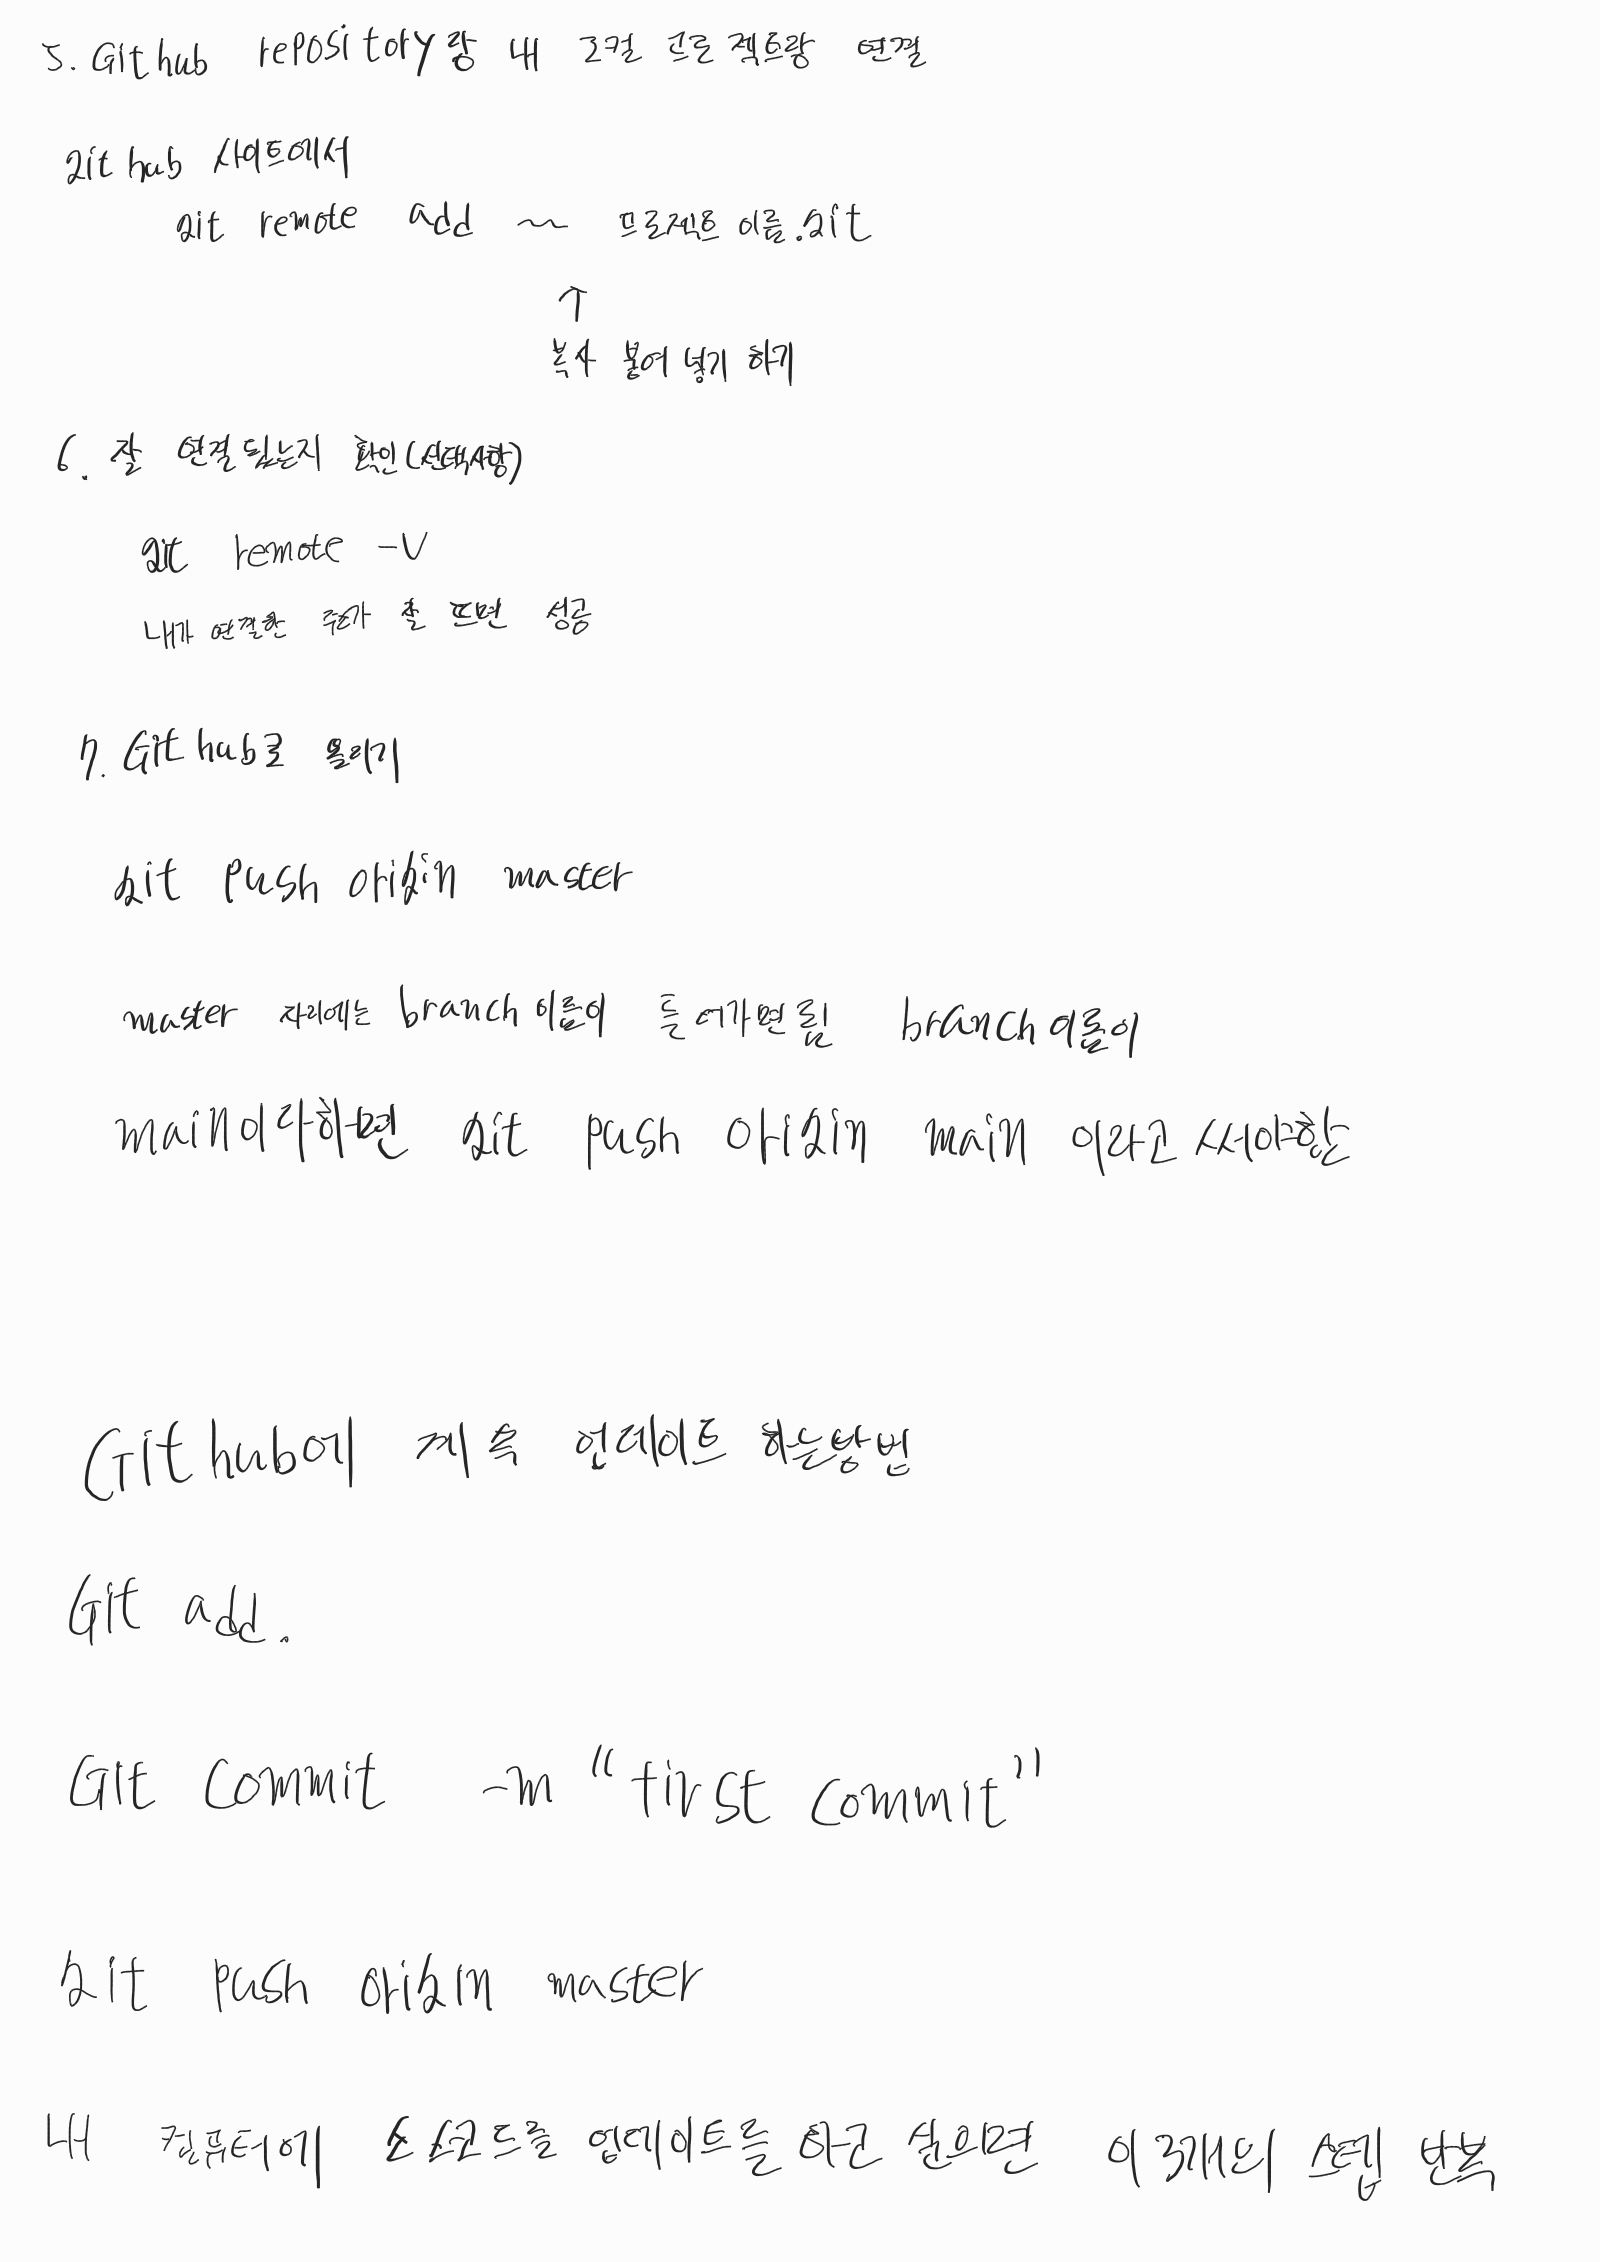 5. Github repository랑 내 로컬 프로젝트랑 연결
github 사이트에서
git remote add ~~ 프로젝트 이름.git
↑
복사 붙여 넣기 하기
6. 잘 연결됐는지 확인(선택사항)
git remote -v
내가 연결한 주소가 잘 뜨면 성공
7. Github로 올리기
git push origin master
master 자리에는 branch 이름이 들어가면됨 branch 이름이
main이라하면 git push origin main 이라고 써야함
Github에 계속 업데이트 하는방법
Git add .
Git commit -m "first commit"
git push origin master
내 컴퓨터에 소스코드를 업데이트를 하고 싶으면 이 3개의 스텝 반복